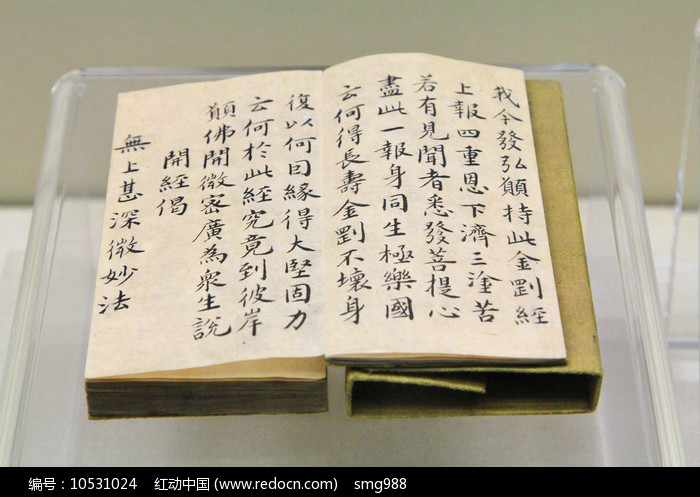 我今發弘願持此金剛經
上報四重恩下濟三塗苦
若有見聞者悉發菩提心
盡此一報身同生極樂國
云何得長壽金剛不壞身
復以何因緣得大堅固力
云何於此經究竟到彼岸
願佛開微密廣為眾生說
開經偈
無上甚深微妙法
编号：10531024 红动中国 (www.redocn.com) smg988